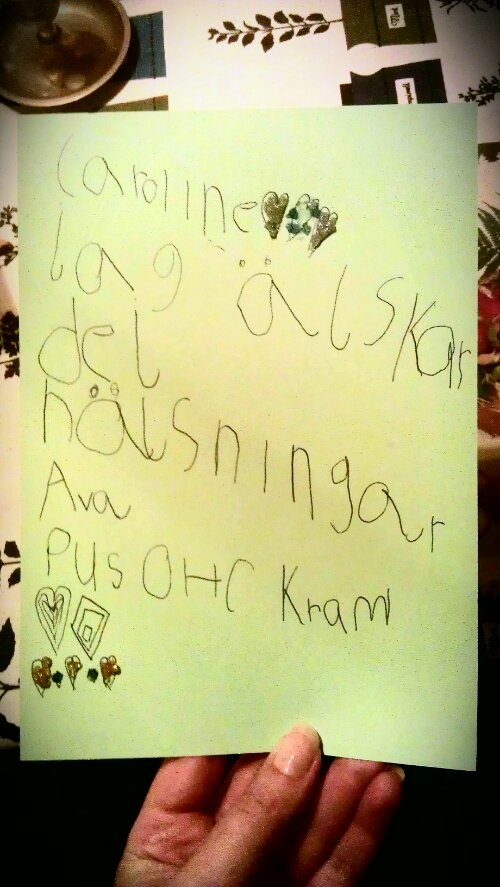 Caroline
Jag älskar
dej
hälsningar
Ava
PUS OHC Kram